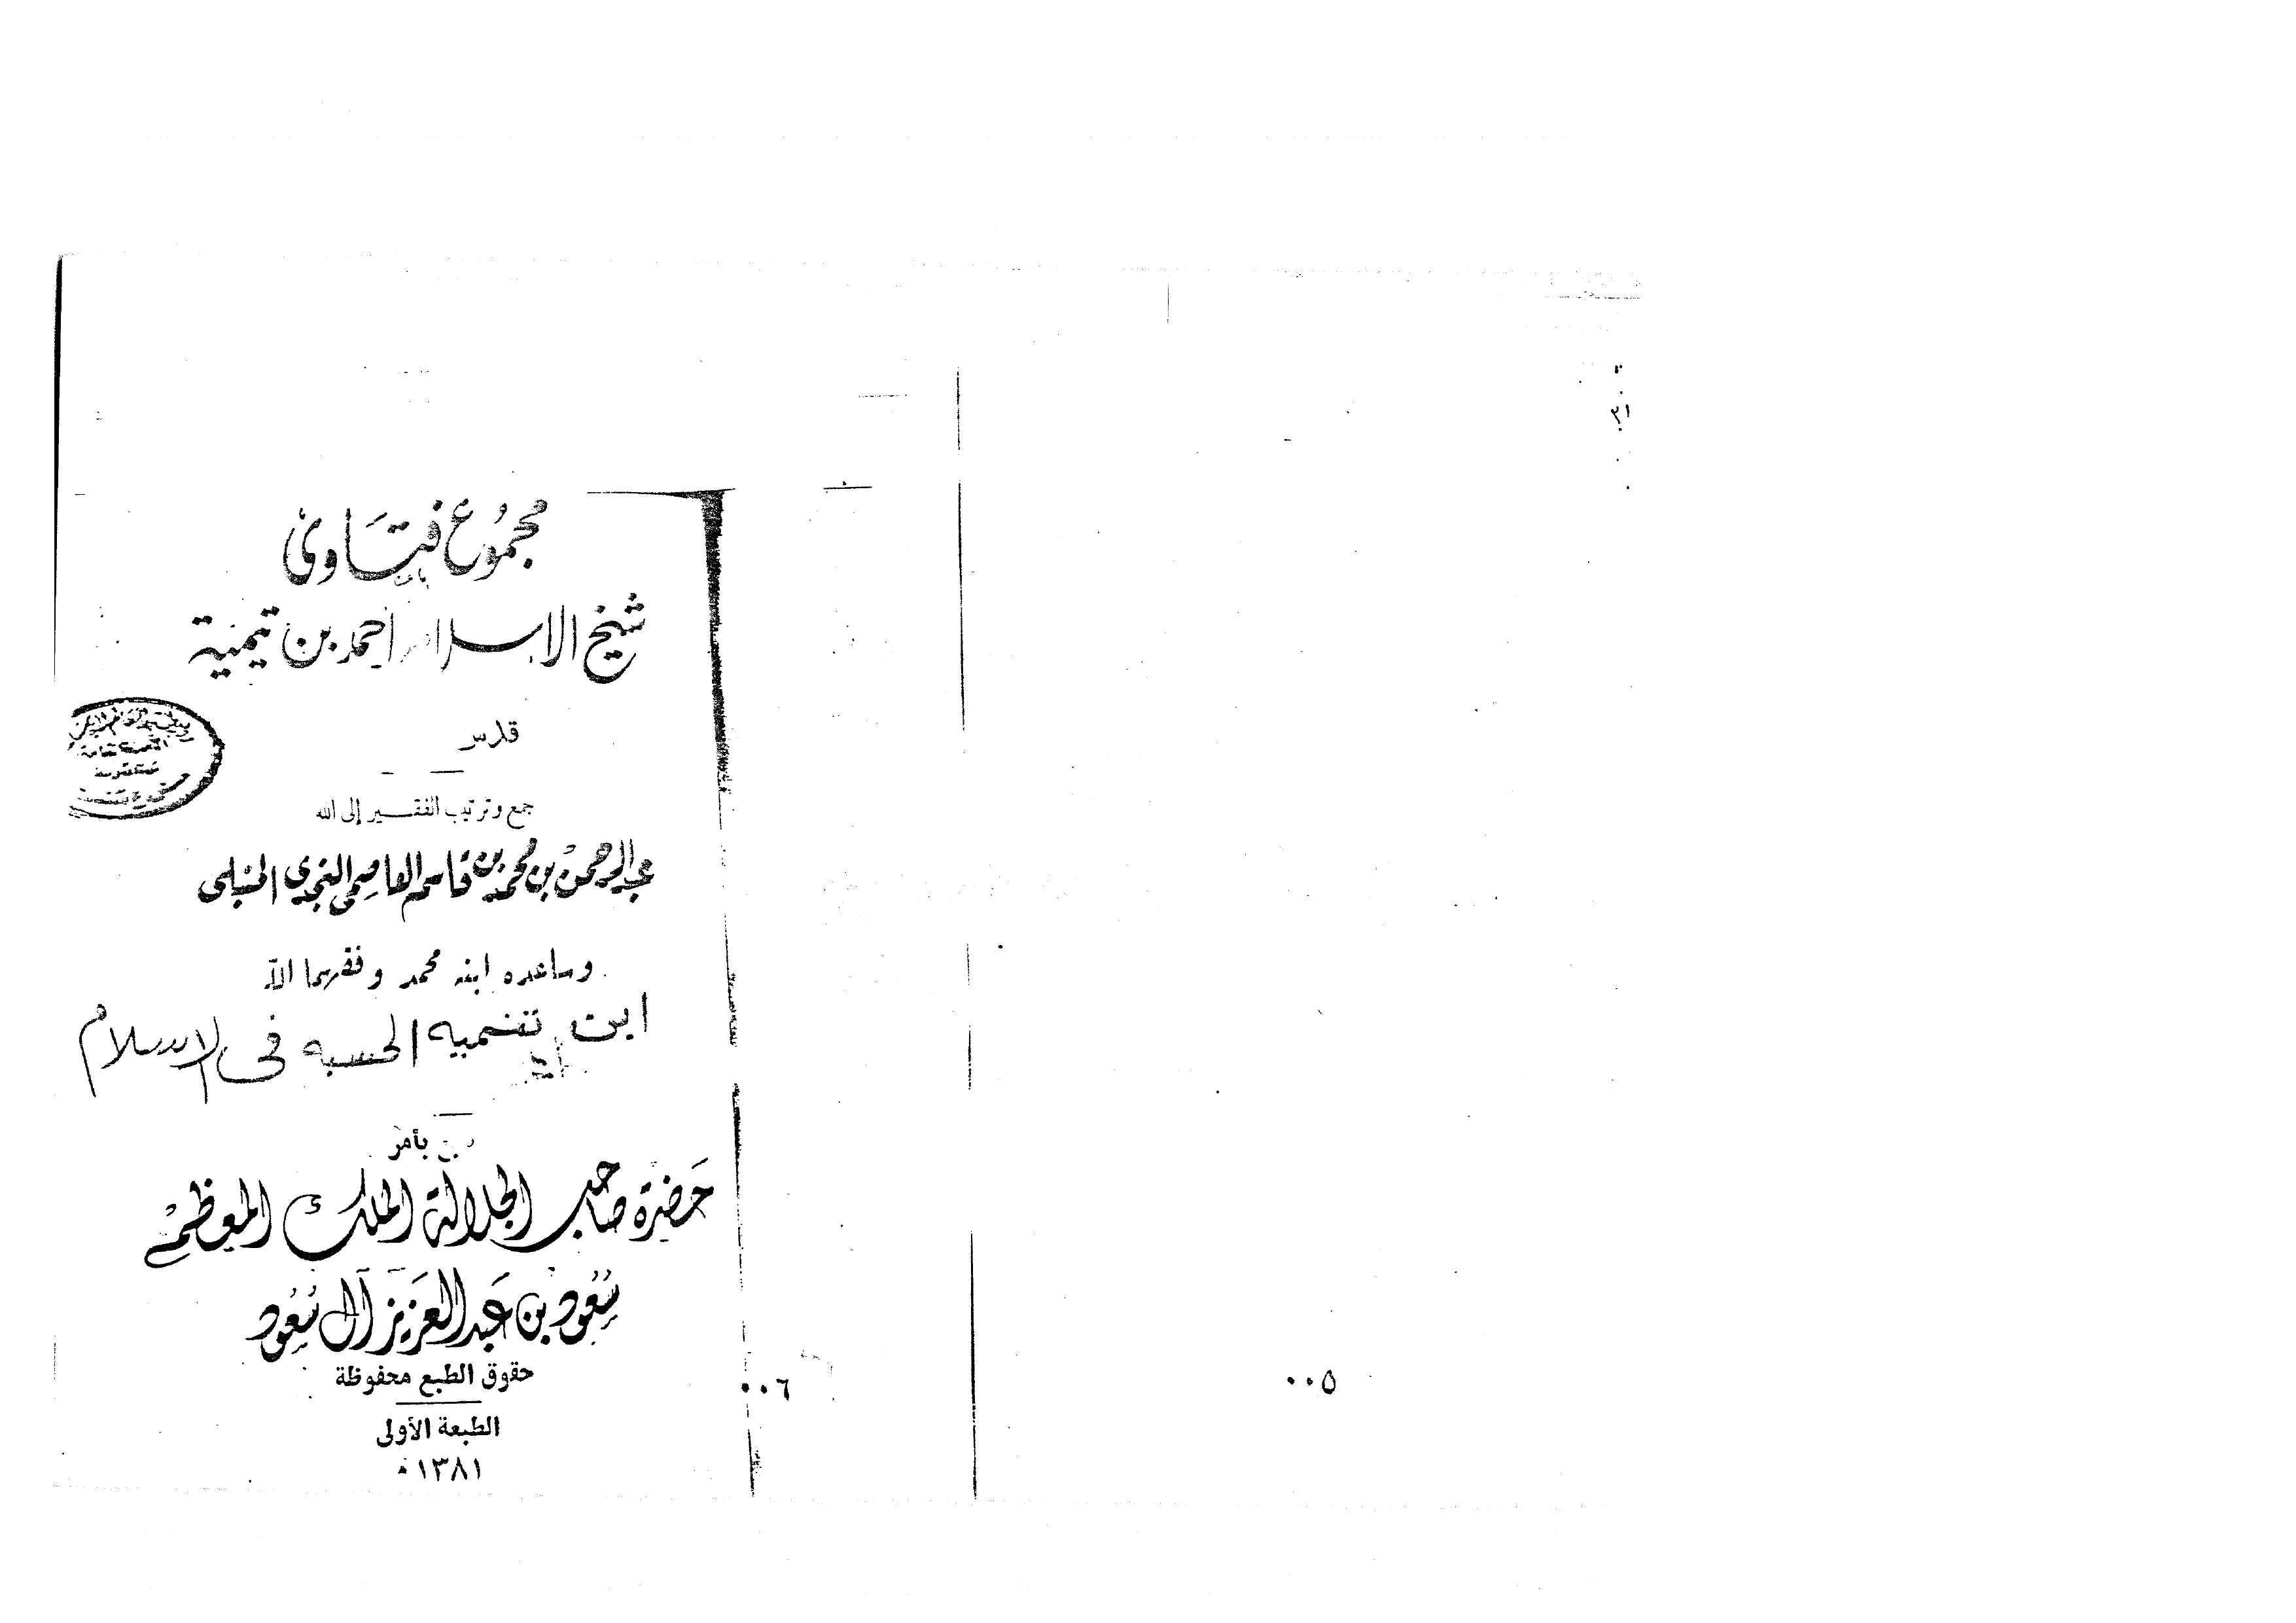 مجموع فتاوى
شيخ الاسلام أحمد بن تيمية
قدس
جمع وترتيب الفقير إلى الله
عبد الرحمن بن محمد بن قاسم العاصمي النجدي الحنبلي
وساعده ابنه محمد وفقهما الله
ابن تيميه الحسبه فى الاسلام
بأمر
حضرة صاحب الجلالة الملك المعظم
سعود بن عبد العزيز آل سعود
حقوق الطبع محفوظة
الطبعة الأولى
١٣٨١ هـ
٠٠٥
٠٠٦